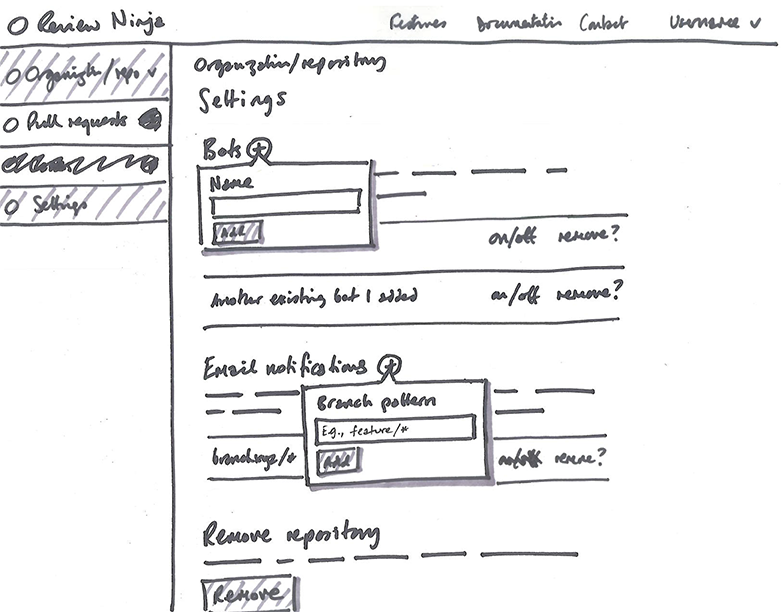 Review Ninja
Features Documentation Contact Username v
Organization/repo v
Pull requests
Settings
Organization/repository
Settings
Bots +
Name
Add
on/off remove?
Another existing bot I added on/off remove?
Email notifications +
Branch pattern
E.g., feature/*
Add
on/off remove?
Remove repository
Remove